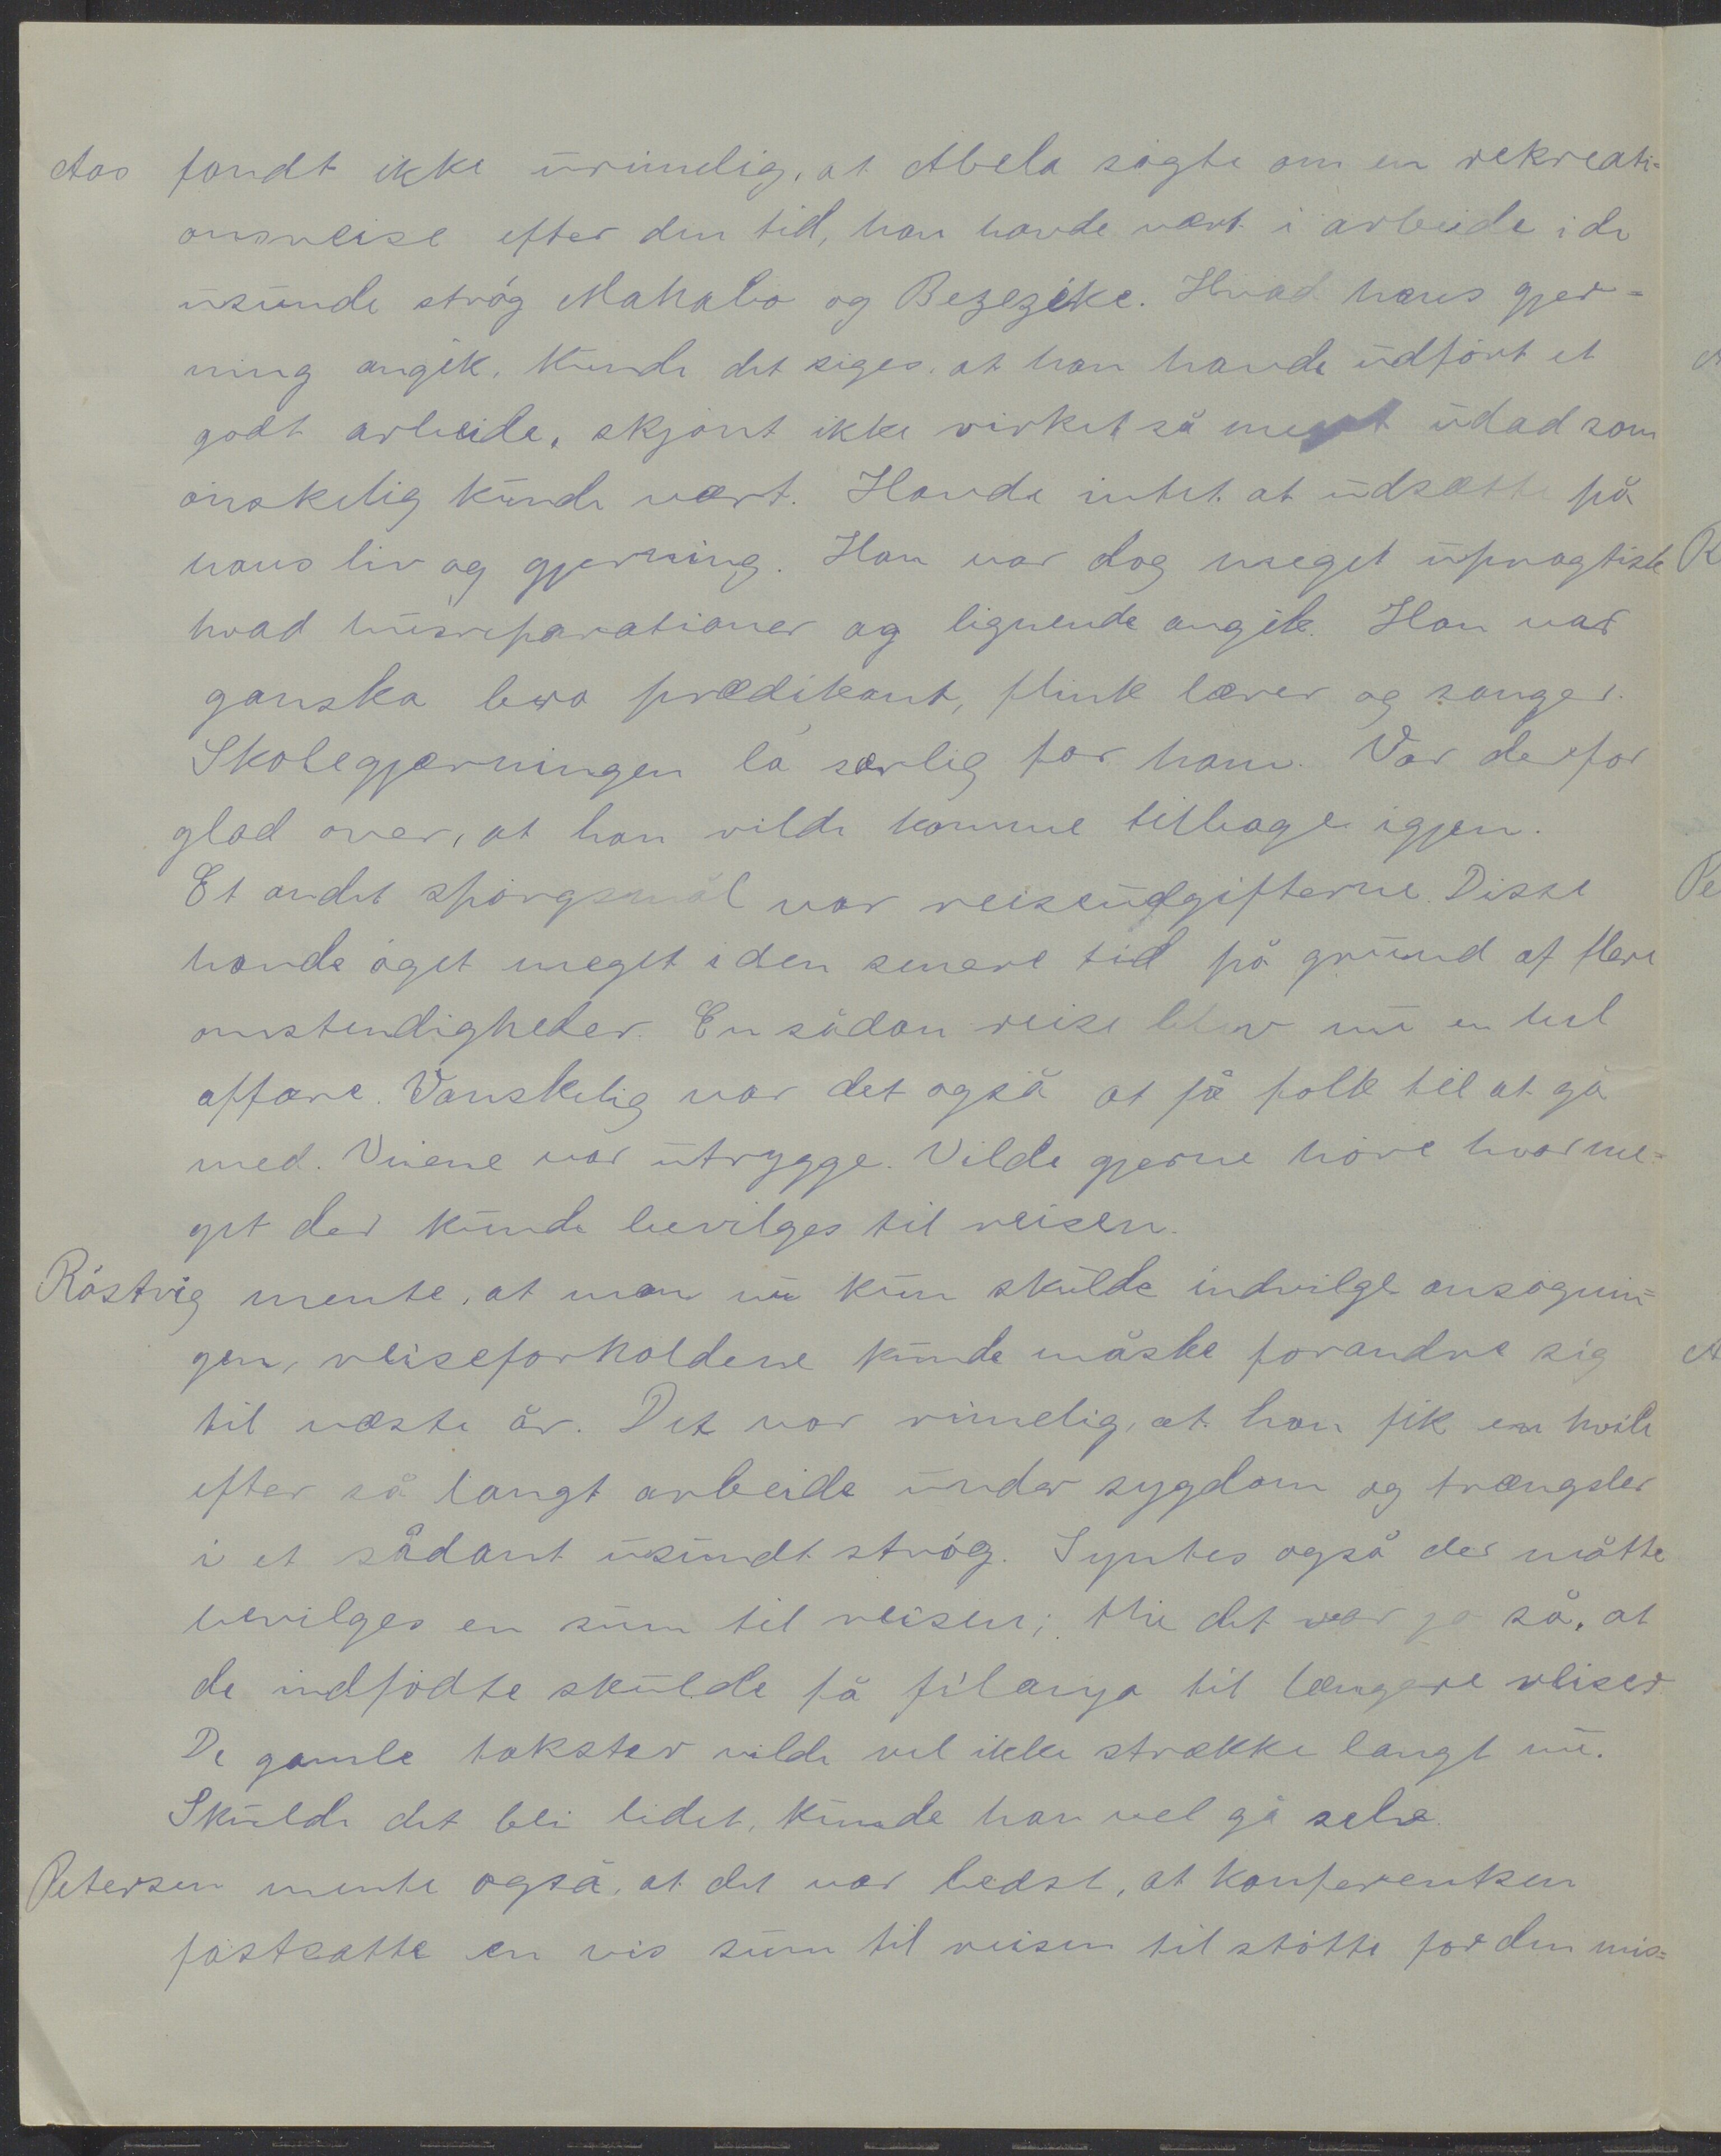 Aas fandt ikke urimelig, at Abela søgte om en rekreati=
onsreise efter den tid, han havde vært i arbeide i de
usunde strøg Mahabo og Bezezike. Hvad hans gjer=
ning angik, kunde det siges, at han havde udført et
godt arbeide, skjønt ikke virket så meget udad som
ønskelig kunde vært. Havde intet at udsætte på
hans liv og gjerning. Han var dog meget upragtisk
hvad husreparationer og lignende angik. Han var
ganska bra prædikant, flink lærer og sanger.
Skolegjærningen lå særlig for ham. Var derfor
glad over, at han vilde komme tilbage igjen.
Et andet spørgsmål var reiseudgifterne. Disse
havde øget meget i den senere tid på grund af flere
omstendigheder. En sådan reise blev nu en hel
affære. Vanskelig var det også at få folk til at gå
med. Veiene var utrygge. Vilde gjerne høre hvorme=
get der kunde bevilges til reisen.
Røstvig mente, at man nu kun skulde indvilge ansøgnin=
gen, reiseforholdene kunde måske forandre sig
til næste år. Det var rimelig, at han fik en hvile
efter så langt arbeide under sygdom og trængsler
i et sådant usundt strøg. Syntes også der måtte
bevilges en sum til reisen; thi det var jo så, at
de indfødte skulde få filanja til længere reiser.
De gamle takster vilde vel ikke strække langt nu.
Skulde det bli lidet, kunde han vel gå selve.
Petersen mente også, at det var bedst, at konferentsen
fastsatte en vis sum til reisen til støtte for den mis=